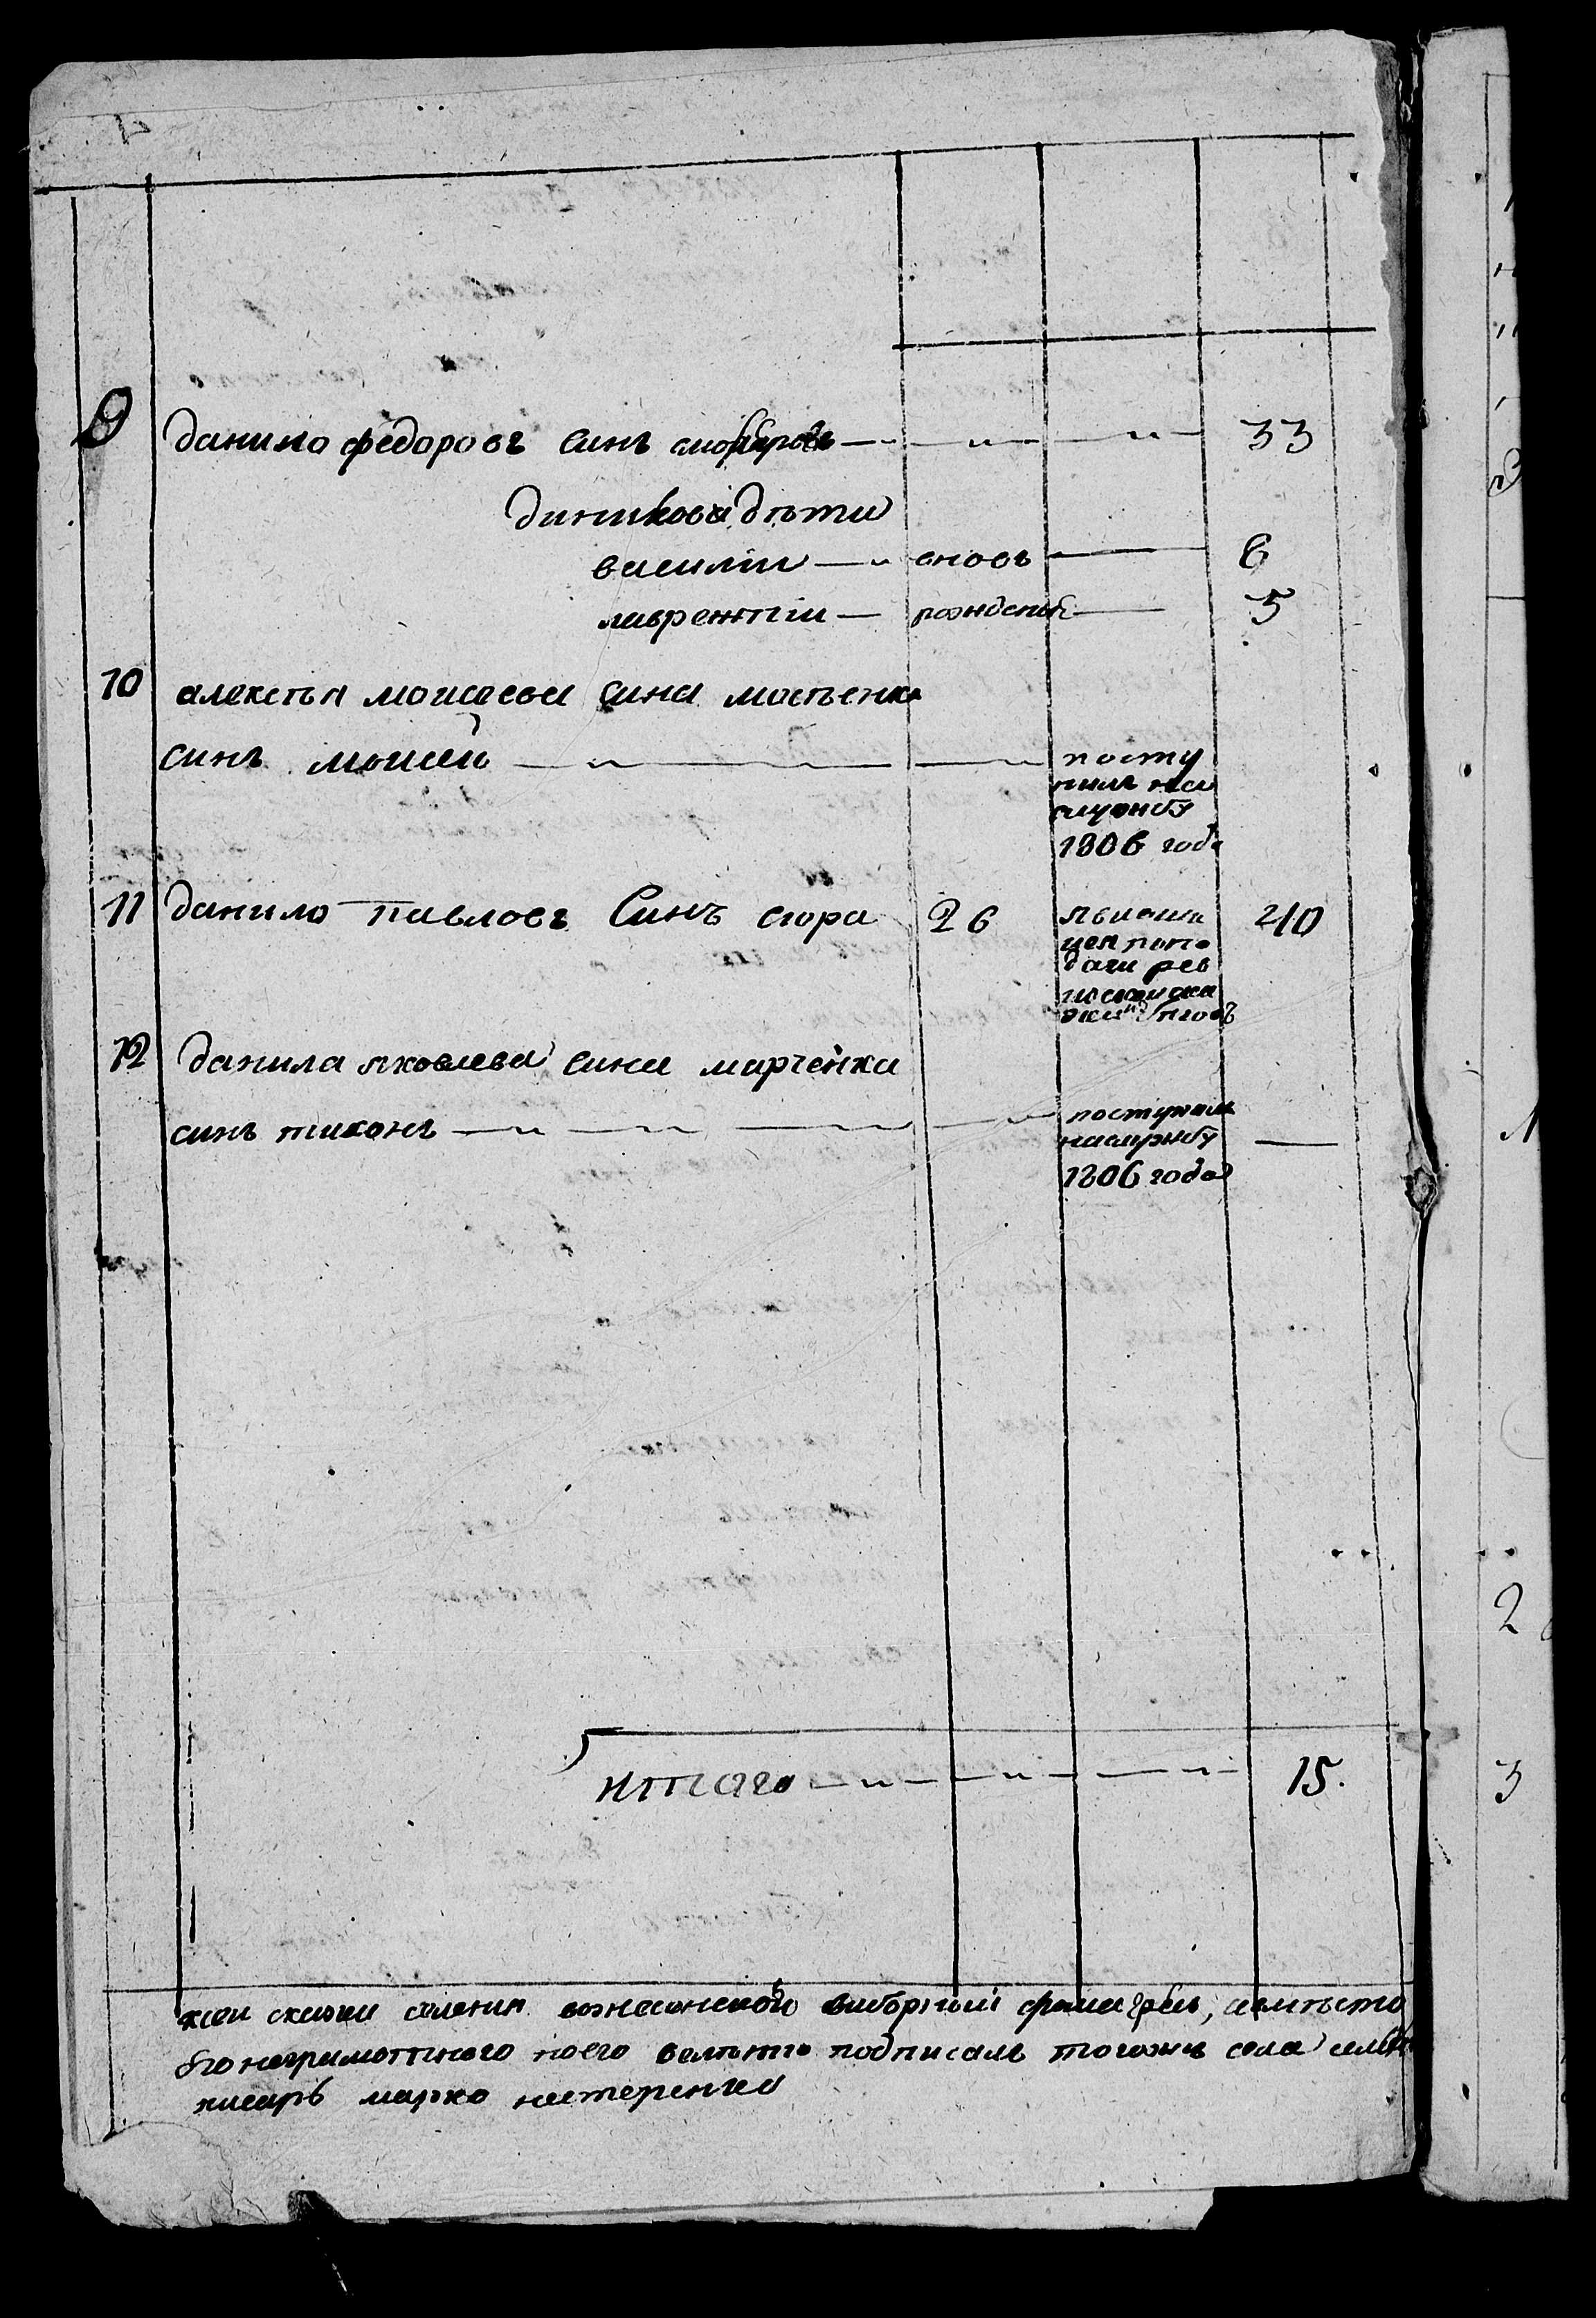 9 данило федоровъ синъ 33
данилови дѣти
василии вновь 6
лаврентии рожденые 5
10 алексѣя моисеева сина мосѣенка
синъ моисей посту
пилъ на
службу
1806 года
11 данило павловъ Синъ сюра 26 явивши 40
цея попо
дачи рев
12 данила яковлева сина марченка
синъ тихонъ поступилъ
наслужбу
1806 года
итого 15.
ксеи скаски селения вознесенской виборний вмѣсто
его неграмотного поего велѣнию подписалъ тогожъ села
писарь марко нестеренко
2
3